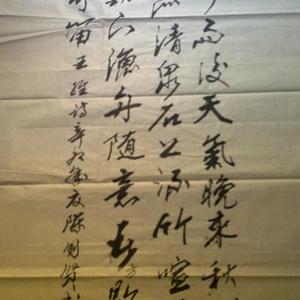 雨後天氣晚来秋
照清泉石上流竹喧
動下漁舟随意春芳歇
可留王維詩辛卯